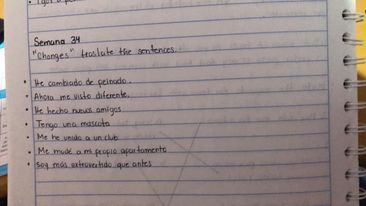 Semana 34
"Changes" traslate the sentences.
• He cambiado de peinado.
• Ahora me visto diferente.
• He hecho nuevos amigos
• Tengo una mascota
• Me he unido a un club
• Me mudé a mi propio apartamento
• Soy más extrovertido que antes